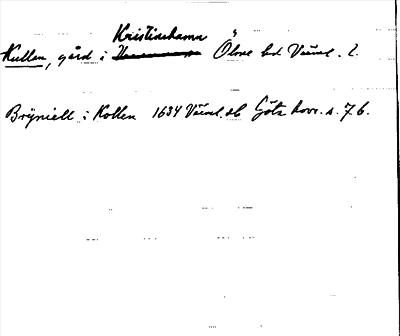 Kristinehamn
Kullen, gård i Ölme hd Värml. l.
Bryniell i Kollen 1634 Värml. db Göta hovr. s. 76.